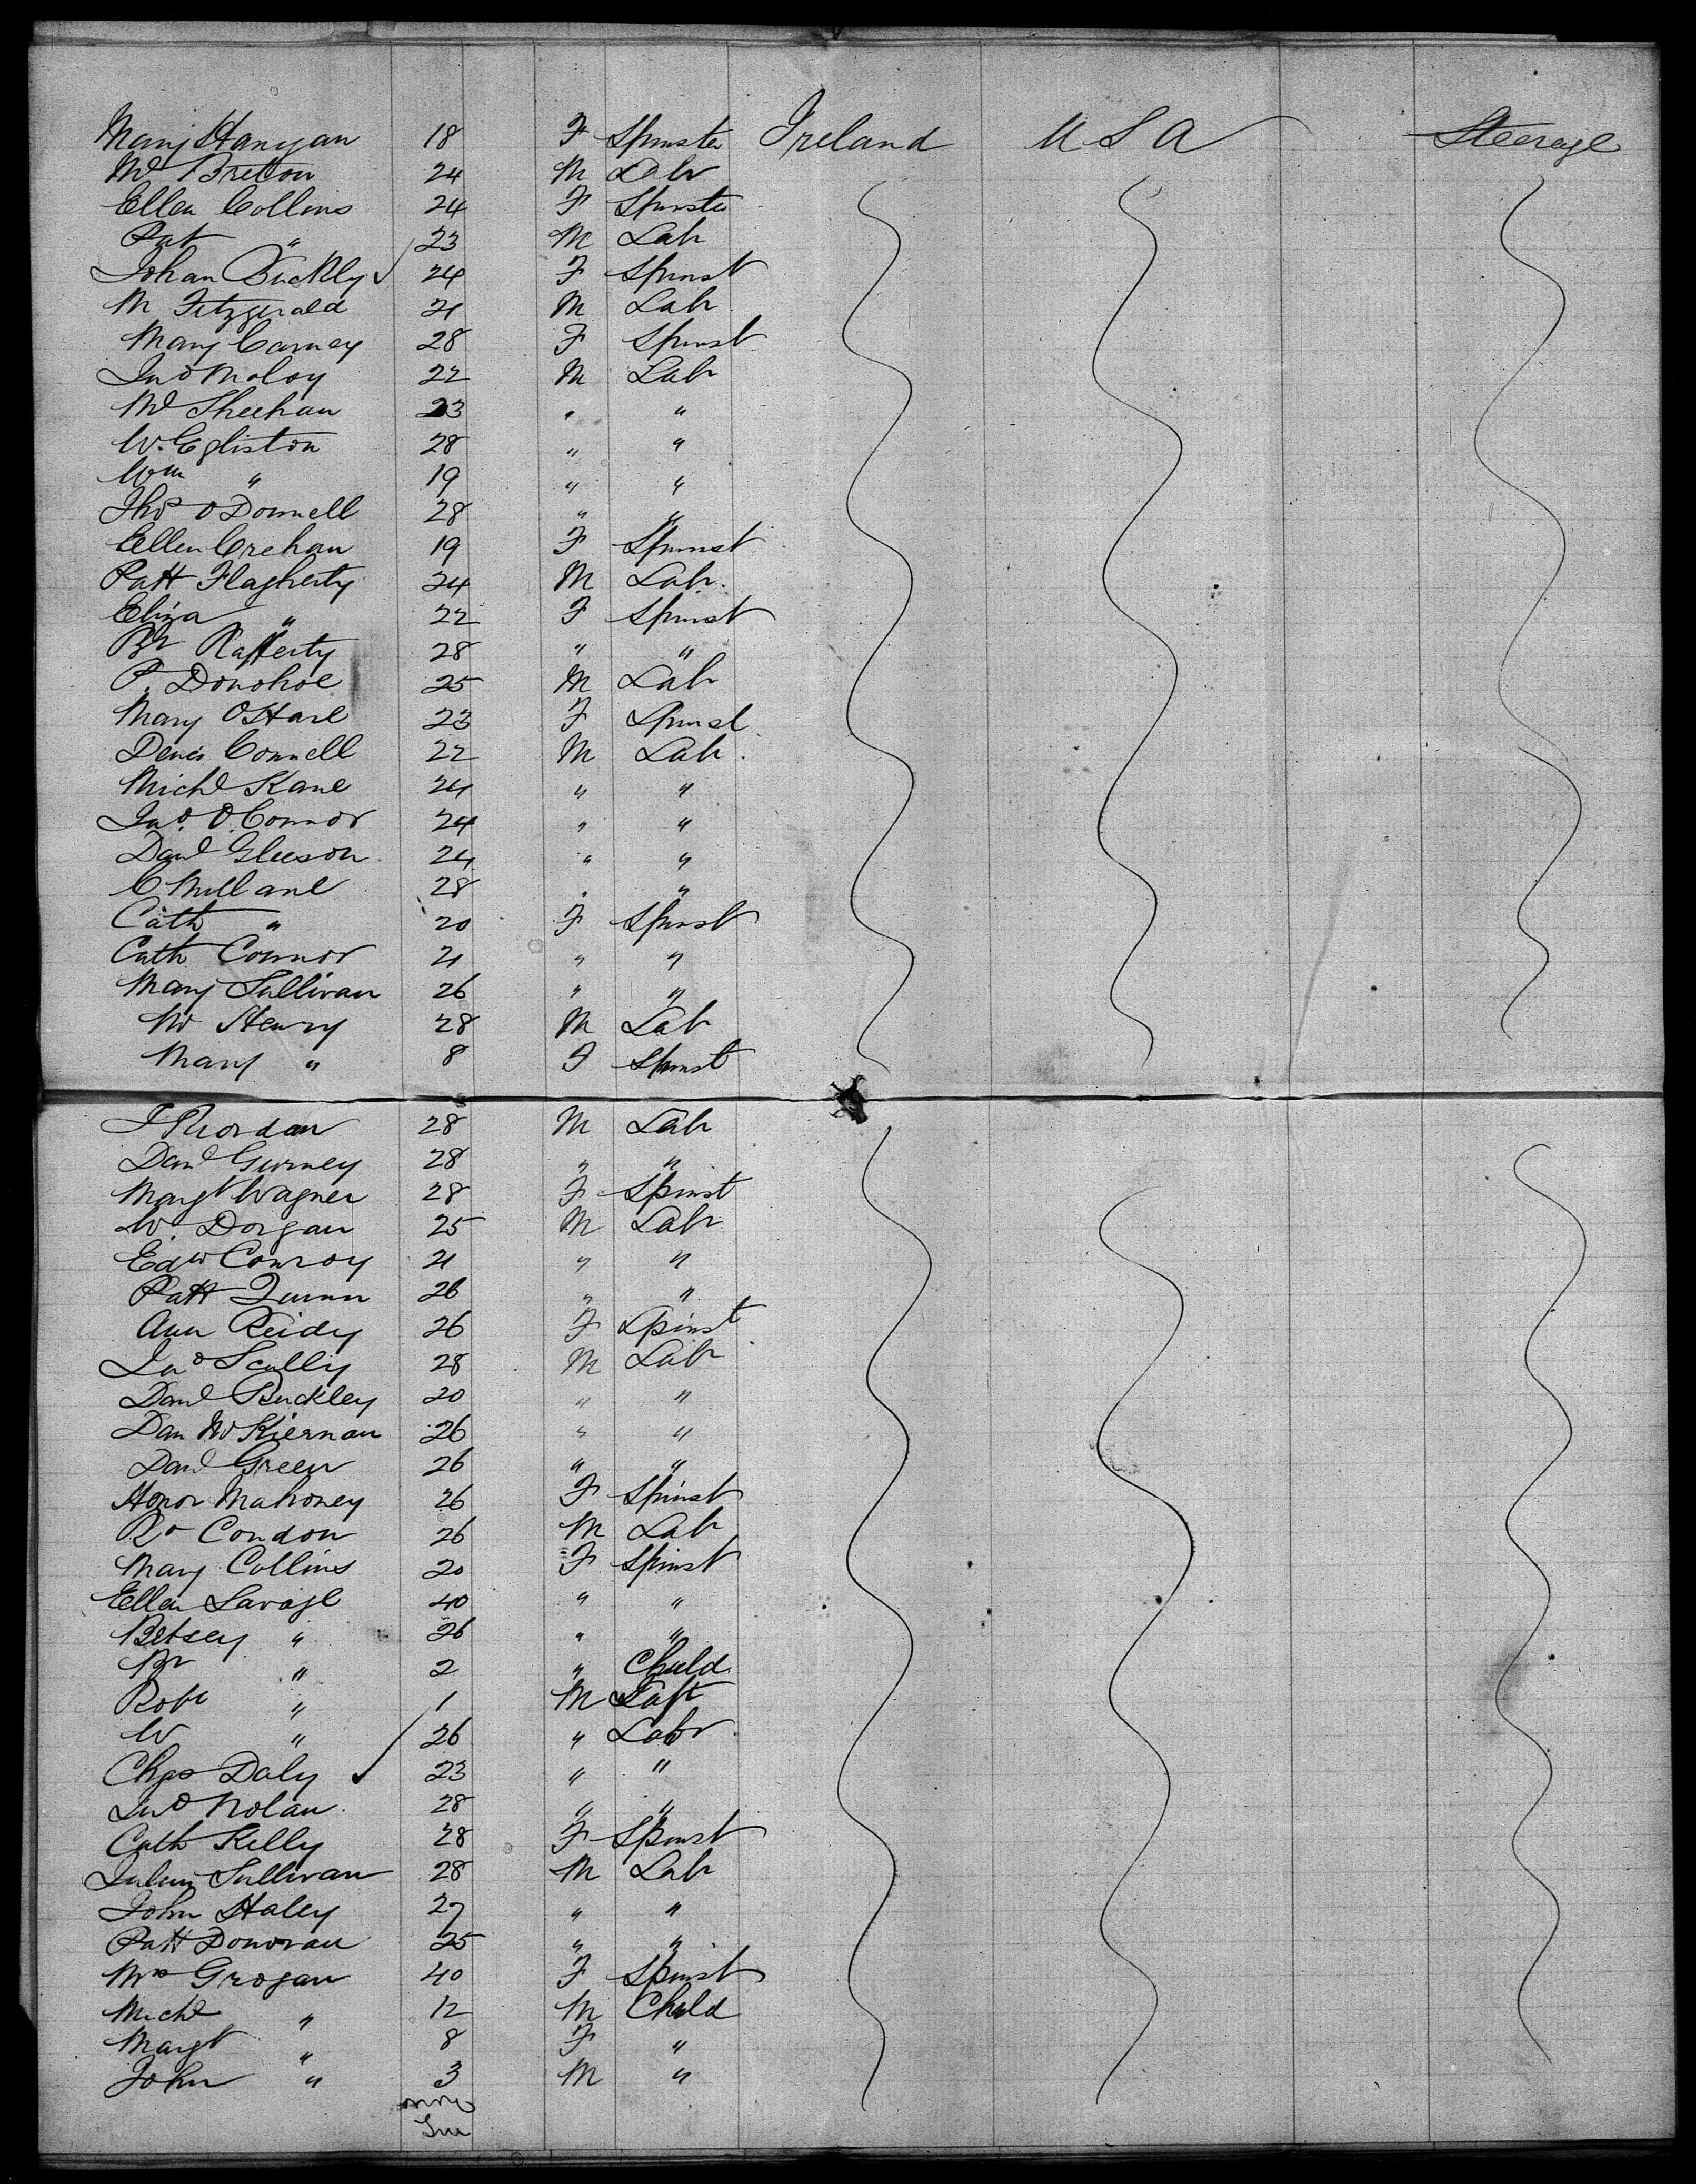 Mary Hanigan 18 F Spinster Ireland U S A Steerage
Ml Breton 24 M Labr
Ellen Collins 24 F Spinster
Pat " 23 M Labr
Johan Buckly 24 F Spinst
M Fitzgerald 21 M Labr
Mary Carney 28 F Spinst
Jno Moloy 22 M Labr
Ml Sheehan 23 " "
W. Egliston 28 " "
Wm " 19 " "
Thos O Donnell 28 " "
Ellen Crehan 19 F Spinst
Patt Flagherty 24 M Labr.
Eliza " 22 F Spinst
Bt Rafferty 28 " "
P. Donohoe 25 M Labr
Mary O Hare 23 F Spinst
Denis Connell 22 M Labr.
Michl Kane 24 " "
Jno. O. Connor 24 " "
Danl Gleeson 24 " "
C Mullane 28 " "
Cath " 20 F Spinst
Cath Connor 21 " "
Mary Sullivan 26 " "
Henry 28 M Labr
Mary " 8 F Spinst
J Riordan 28 M Labr
Danl Gurney 28 " "
Margt Wagner 28 F Spinst
W. Dorgan 25 M Labr
Edw Conroy 21 " "
Patt Quinn 26 " "
Ann Reidy 26 F Spinst
Jno Scully 28 M Labr
Danl Buckley 20 " "
Dan Mc Kiernan 26 " "
Danl Green 26 " "
Honor Mahoney 26 F Spinst
Condon 26 M Labr
Mary Collins 20 F Spinst
Ellen Savage 40 " "
Betsey " 26 " "
" 2 " Child
Robt " 1 M
W " 26 " Labr
Chas Daly 23 " "
Jno Nolan 28 " "
Cath Kelly 28 F Spinst
Sullivan 28 M Labr
John Haley 27 " "
Patt Donovan 25 " "
Mrs Grogan 40 F Spinst
Michl " 12 M Child
Margt " 8 F "
John " 3 M "